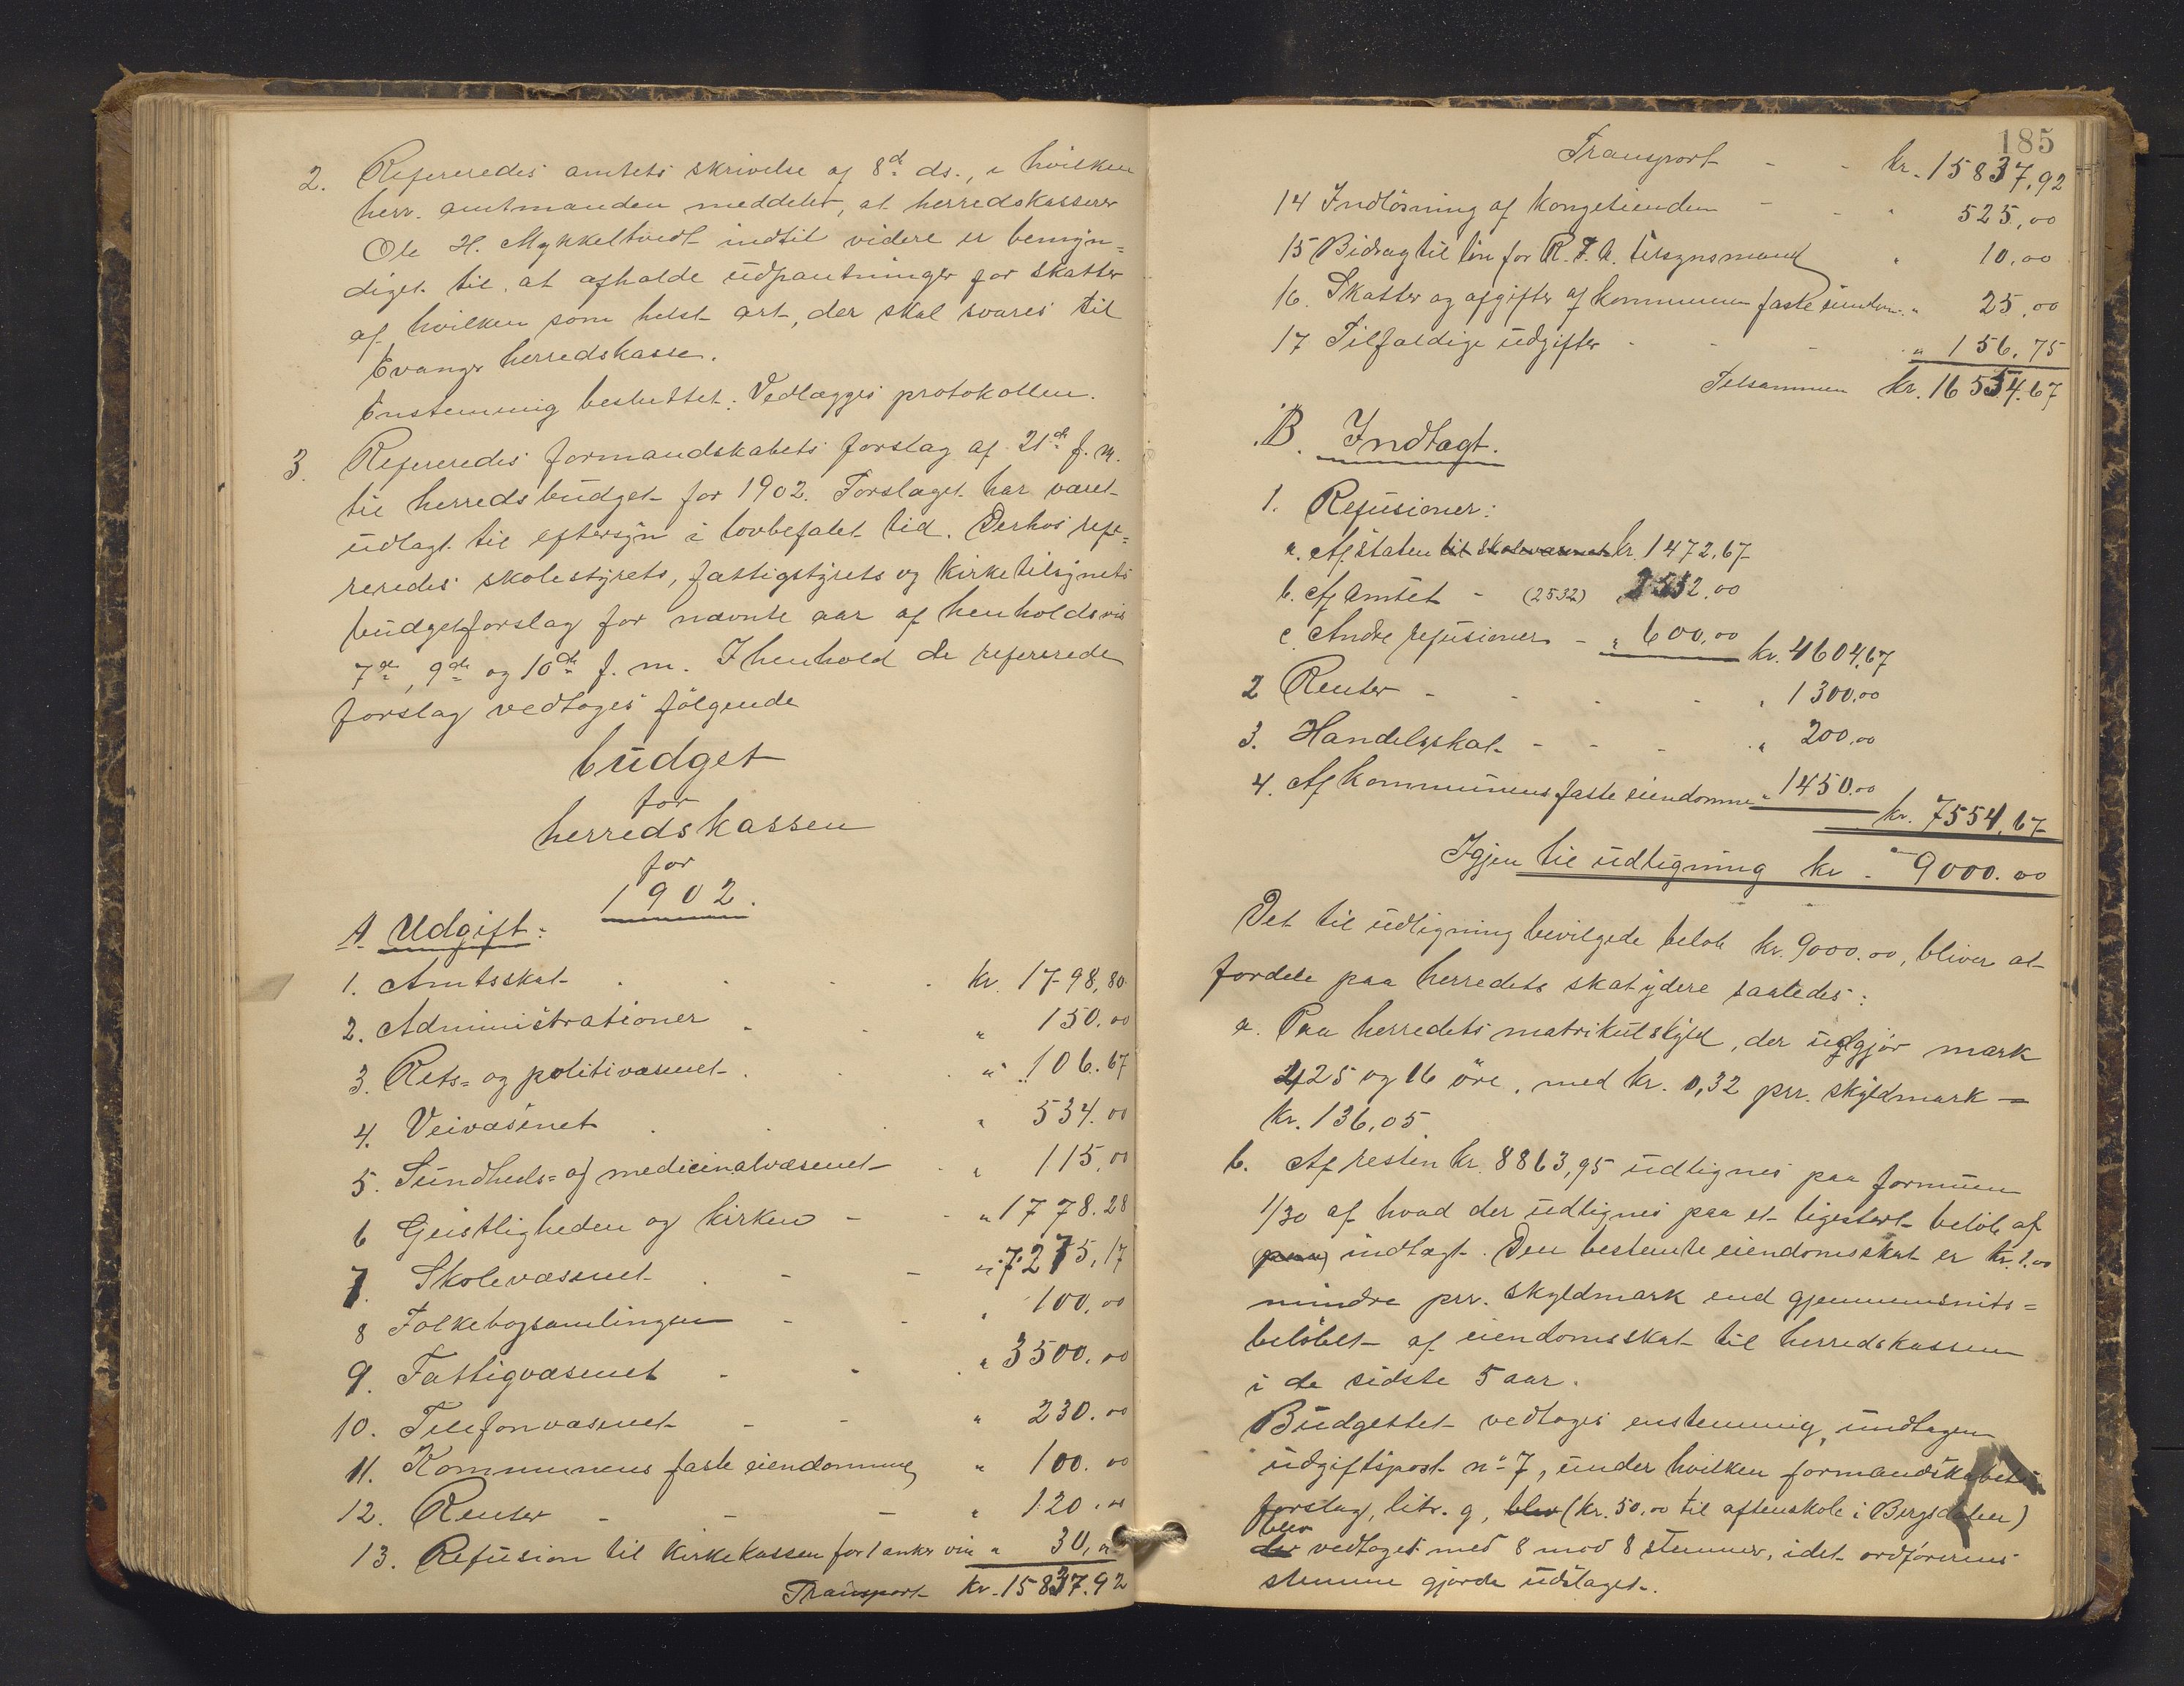 2. Refereredes amtets skrivelse af 8de ds., i hvilken
herr. amtmanden meddeler, at herredskasserer
Ole H. Mykkeltvedt indtil videre er bemyn=
diget til at afholde udpantninger for skatter
af hvilken som helst art, der skal svares til
Evanger herredskasse.
Enstemmig besluttet: Vedlægges protokollen.
3. Refereredes formandskabets forslag af 21de f. m.
til herredsbudget for 1902. Forslaget har været
udlagt til eftersyn i lovbefalet tid. Derhos refe=
reredes skolestyrets, fattigstyrets og kirketilsynets
budgetforslag for nævnte aar af henholdsvis
7de, 9de og 10de f. m. I henhold de refererede
forslag vedtoges følgende
budget
for
herredskassen
for
1902.
A Udgift:
1. Amtsskat kr. 1798,80
2. Administrationer " 150.00
3. Rets= og politivæsenet " 106.67
4. Veivæsenet " 534.00
5. Sundheds= og medicinalvæsenet " 115,00
6 Geistligheden og kirken " 1778.28
7. Skolevæsenet " 7275,17
8 Folkebogsamlingen " 100,00
9. Fattigvæsenet " 3500.00
10. Telefonvæsenet " 230.00
11. Kommunens faste eiendomme " 100.00
12. Renter " 120.00
13. Refusion til kirkekassen for 1 anker vin " 30,00
Transport kr. 15837.92
185
Transport kr. 15837,92
14 Indløsning af kongetienden " 525,00
15 Bidrag til løn for R. F. A. tilsynsmand " 10,00
16. Skatter og afgifter af kommunen faste eiendom. " 25,00
17 Tilfældige udgifter " 156,75
Tilsammen kr. 16554.67
B. Indtægt.
1. Refusioner:
a. Af staten til skolevæsenet kr. 1472,67
b. Af amtet - (2532) 2532,00
c. Andre refusioner - " 600,00 kr. 4604,67
2 Renter " 1300,00
3. Handelsskat " 200,00
4. Af kommunens faste eiendomme " 1450.00 kr. 7554,67
Igjen til udligning kr. 9000.00
Det til udligning bevilgede beløb kr. 9000.00, bliver at
fordele paa herredets skatydere saaledes:
a. Paa herredets matrikulskyld, der udgjør mark
425 og 16 øre, med kr. 0,32 prr. skyldmark —
kr. 136,05.
b. Af resten kr. 8863,95 udlignes paa formuen
1/30 af hvad der udlignes paa et ligestort beløb af
paa indtægt. Den bestemte eiendomsskat er kr. 1.00
mindre prr. skyldmark end gjennemsnits=
beløbet af eiendomsskat til herredskassen
i de sidste 5 aar.
Budgettet vedtoges enstemmig, undtagen
udgiftspost no 7, under hvilken formandskabets
forslag, litr. g, blev (kr. 50.00 til aftenskole i Bergsdalen)
blev
der vedtaget med 8 mod 8 stemmer, idet ordførerens
stemme gjorde udslaget.